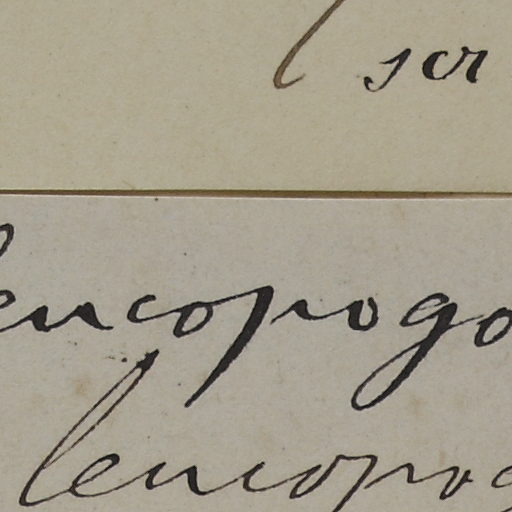 scr
leucopogo
leucopog